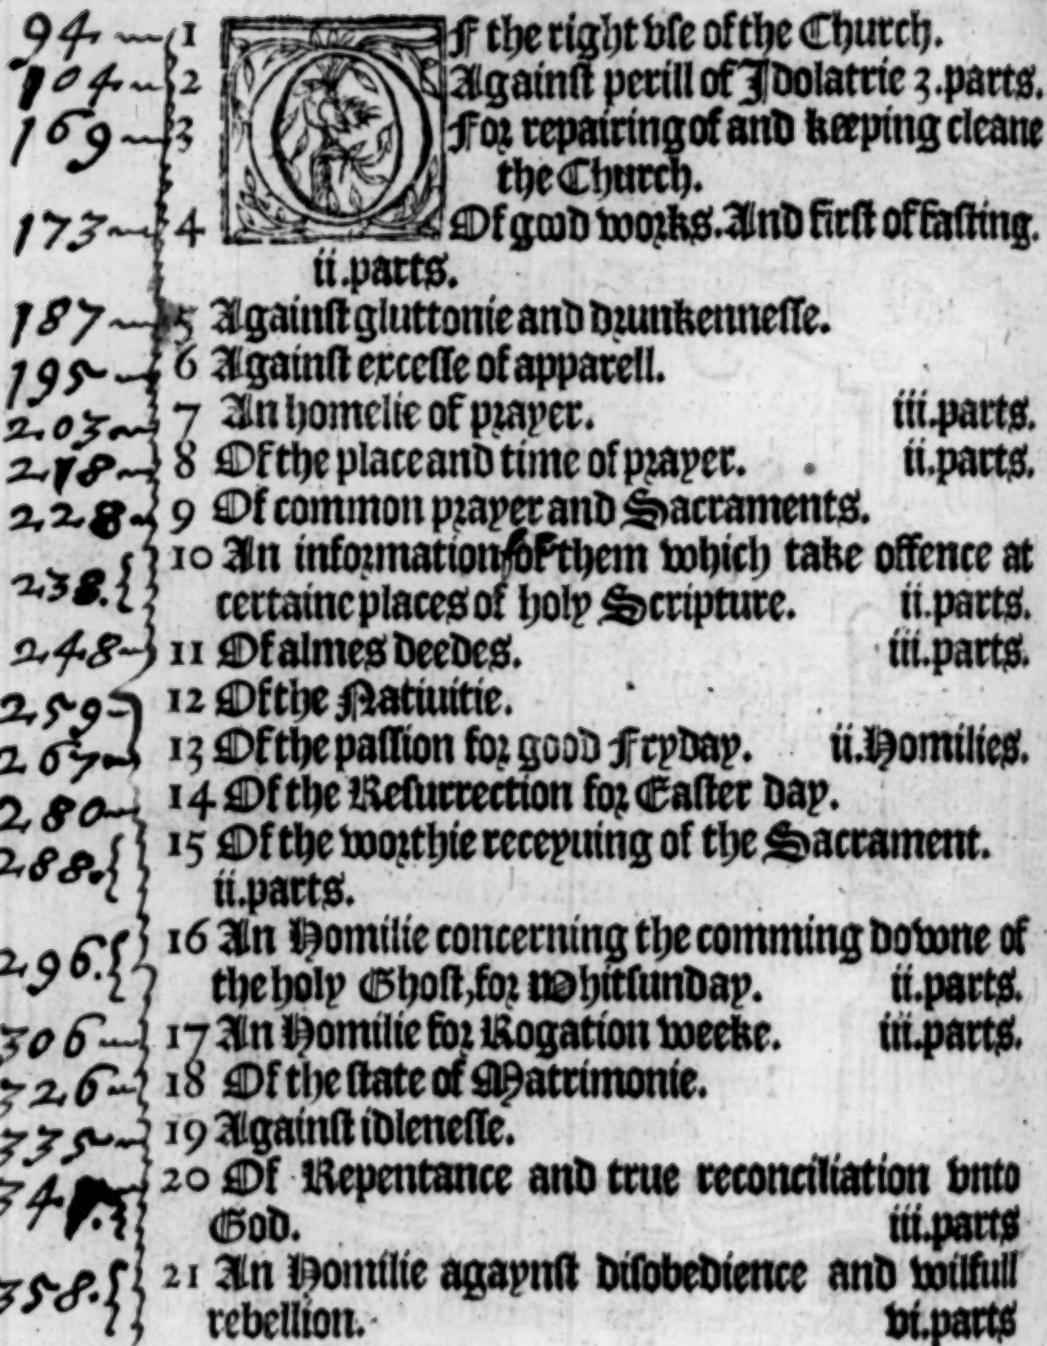 94 1 OF the right vse of the Church.
104 2 Against perill of Idolatrie 3.parts.
169 3 For repairing of and keeping cleane
the Church.
173 4 Of good works. And first of fasting.
ii.parts.
187 5 Against gluttonie and drunkennesse.
195 6 Against excesse of apparell.
203 7 An homelie of prayer. iii.parts.
218 8 Of the place and time of prayer. ii.parts.
228 9 Of common prayer and Sacraments.
10 An information for them which take offence at
238. certaine places of holy Scripture. ii.parts.
248 11 Of almes deedes. iii.parts.
259 12 Of the Natiuitie.
267 13 Of the passion for good Fryday. ii.Homilies.
280 14 Of the Resurrection for Easter day.
288. 15 Of the worthie receyuing of the Sacrament.
ii.parts.
296. 16 An Homilie concerning the comming downe of
the holy Ghost, for Whitsunday. ii.parts.
306 17 An Homilie for Rogation weeke. iii.parts.
326 18 Of the state of Matrimonie.
335 19 Against idlenesse.
20 Of Repentance and true reconciliation vnto
God. iii.parts
358. 21 An Homilie agaynst disobedience and wilfull
rebellion. vi.parts